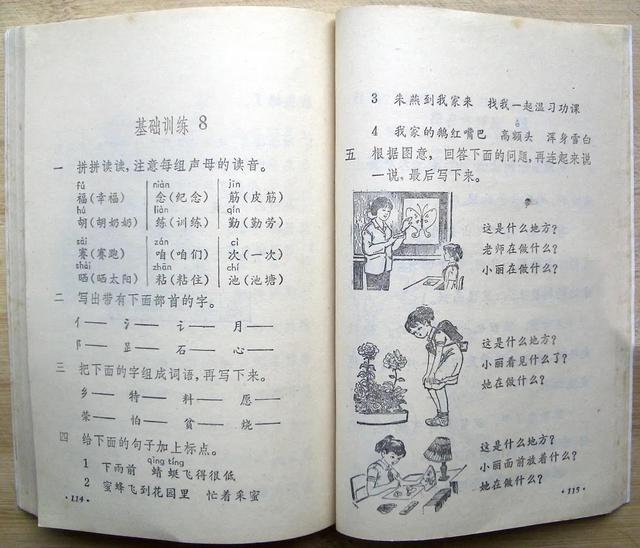 基础训练 8
一 拼拼读读，注意每组声母的读音。
fú niàn jīn
福(幸福) 念(纪念) 筋(皮筋)
hú liàn qín
胡(胡奶奶) 练(训练) 勤(勤劳)
sài zán cì
赛(赛跑) 咱(咱们) 次(一次)
shài zhān chí
晒(晒太阳) 粘(粘住) 池(池塘)
二 写出带有下面部首的字。
亻—— 氵—— 讠—— 月——
阝—— 𧾷—— 石—— 心——
三 把下面的字组成词语，再写下来。
乡—— 特—— 料—— 愿——
荣—— 怕—— 贫—— 烧——
四 给下面的句子加上标点。
qīng tíng
1 下雨前 蜻蜓飞得很低
2 蜜蜂飞到花园里 忙着采蜜
·114·
3 朱燕到我家来 找我一起温习功课
é
4 我家的鹅红嘴巴 高额头 浑身雪白
五 根据图意，回答下面的问题，再连起来说
一说，最后写下来。
这是什么地方？
老师在做什么？
小丽在做什么？
这是什么地方？
小丽看见什么了？
她在做什么？
这是什么地方？
小丽面前放着什么？
她在做什么？
·115·